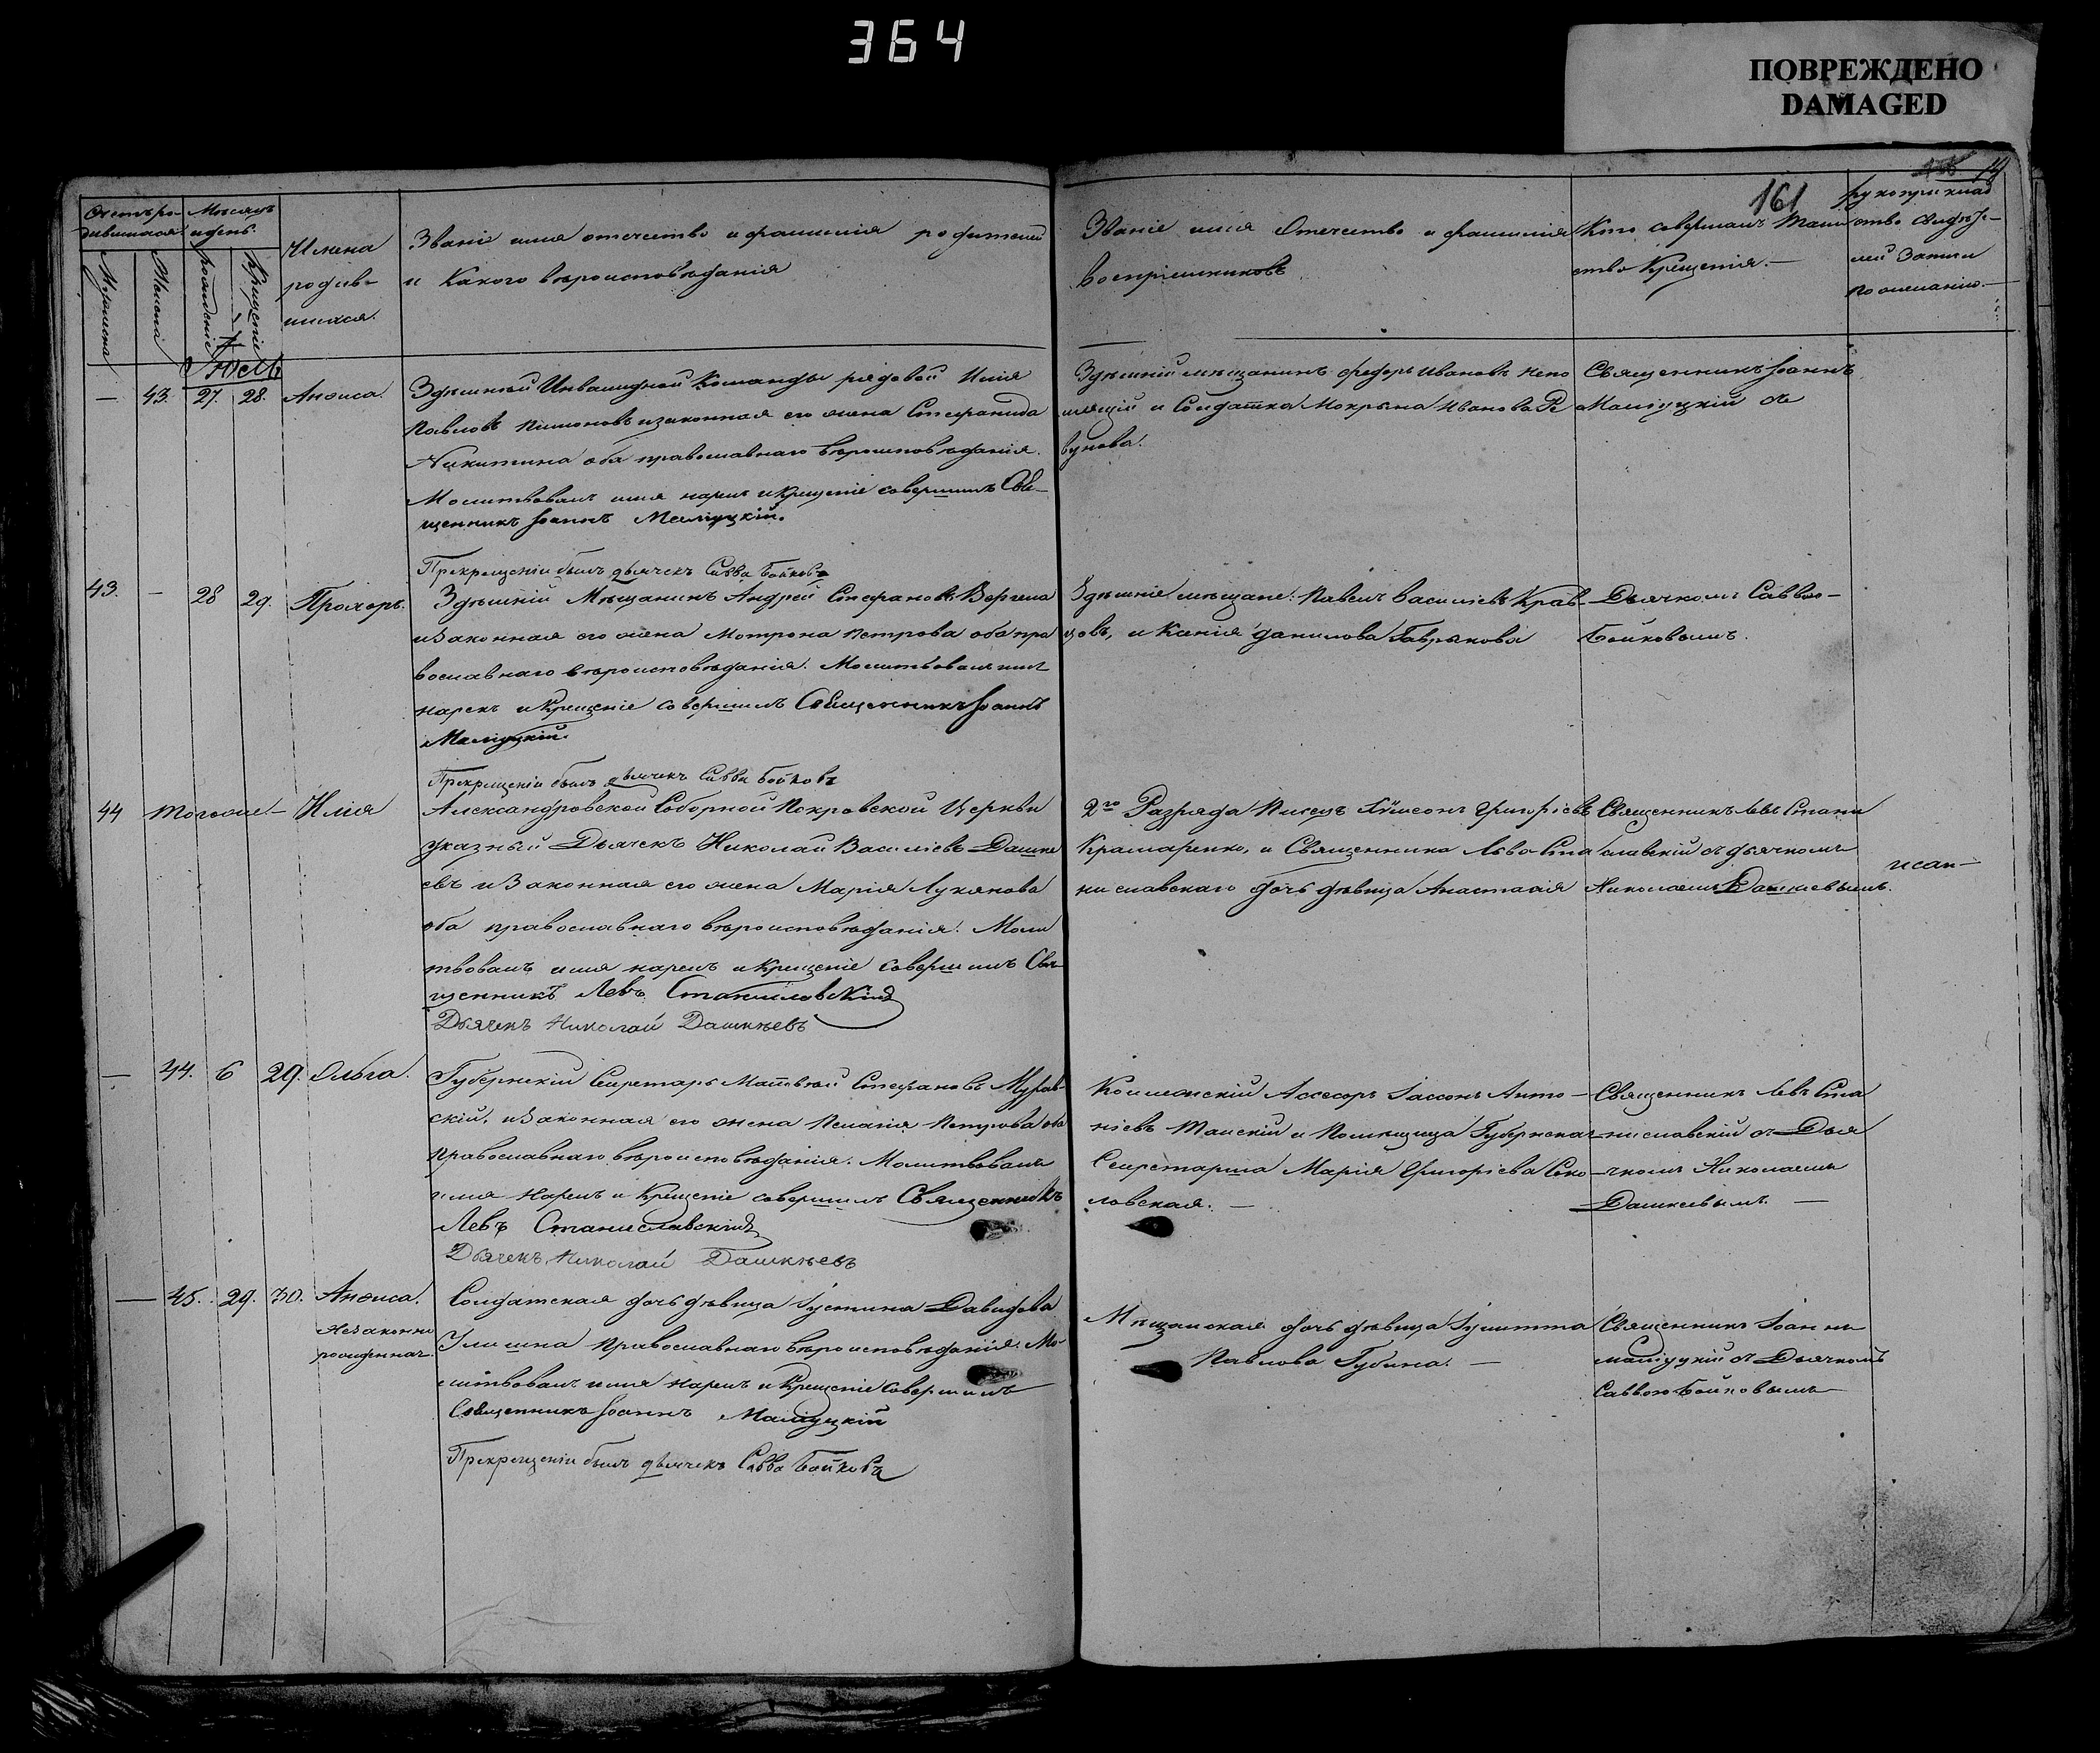 364
ПОВРЕЖДЕНО
DAMAGED
161
Счетъ ро-
дившихся
Мѣсяцъ
и день.
Мужеска
Женска
рожденiе
Крещенiе
Имена
родив-
шихся.
Званiе имя отечество и фамилiя родителей
и Какого вѣроисповѣданiя
Званiе имя Отечество и фамилiя
воспрiемниковъ
Кто совершалъ Таин
ство Крещенiя.—
рукоприклад
ство свидѣте-
лей записи
по желанiю.—
Iюль
— 43. 27. 28. Анѳиса.
Здѣшной Инвалидной Команды рядовой Илiя
Павловъ изаконная его жена Стефанида
Никитина оба православнаго вѣроисповѣданiя.
Молитвовалъ имя нарекъ и Крещенiе совершилъ Свя-
щенникъ Iоаннъ Малiуцкiй.
Прекрещенiи былъ дьячекъ Савва Бойковъ
Здѣшнiй мѣщанинъ Федоръ Ивановъ Непо
и Солдатка Мокрына Иванова Ре
вунова.
Священникъ Iоаннъ
Малiуцкiй
43. — 28 29. Прохоръ.
Здѣшнiй Мѣщанинъ Андрей Стефановъ Вергела
и Законная его жена Мотрона Петрова оба пра
вославнаго вѣроисповѣданiя. Молитвовалъ имя
нарекъ и Крещенiе совершилъ Священникъ Iоаннъ
Малiуцкiй.
Прекрещенiи былъ дьячекъ Савва Бойковъ
Здѣшнiе мѣщане: Павелъ Васильевъ Крав-
цовъ, и Ксенiя Данилова Гаврыкова
Дьячкомъ Саввою—
Бойковымъ.
44 тогоже — Илiя
Александровской Соборной Покровской Церкви
указный Дьячекъ Николай Васильевъ Дашке
евъ и Законная его жена Марiя Лукянова
оба православнаго вѣроисповѣданiя. Моли
твовалъ имя нарекъ и Крещенiе совершилъ Свя-
щенникъ Левъ Станиславскiй
Дьячекъ Николай Дашкѣевъ
2го Разряда Писецъ Григорiевъ
Крамаренко, и Священника Льва Ста
ниславскаго дочь дѣвица Анастасiя
Священникъ Левъ Стани
славскiй съ дьячкомъ
Николаемъ Дашкеевымъ.
— 44. 6 29. Ольга.
Губернскiй Секретарь Матвѣй Стефановъ Мурав-
скiй, и Законная его жена Пелагiя Петрова оба
православнаго вѣроисповѣданiя. Молитвовалъ
имя нарекъ и Крещенiе совершилъ Священникъ
Левъ Станиславскiй
Дьячекъ Николай Дашкѣевъ
Коллежскiй Ассесоръ Iассонъ Анто-
нiевъ и Помѣщица Губернская
Секретарша Марiя Григорiева Соко-
ловская.—
Священникъ Левъ Ста
ниславскiй съ Дья
чкомъ Николаемъ
Дашкеевымъ.—
— 45. 29. 30. Анѳиса.
Незаконно
рожденная.
Солдатская дочь дѣвица Iустина Давидова
Православнаго вѣроисповѣданiя. Мо-
литвовалъ имя нарекъ и Крещенiе совершилъ
Священникъ Iоаннъ Малiуцкiй
Прекрещенiи былъ дьячекъ Савва Бойковъ
Мѣщанская дочь дѣвица
Павлова Губина.—
Священникъ Iоаннъ
Малiуцкiй съ Дьячкомъ
Саввою Бойковымъ